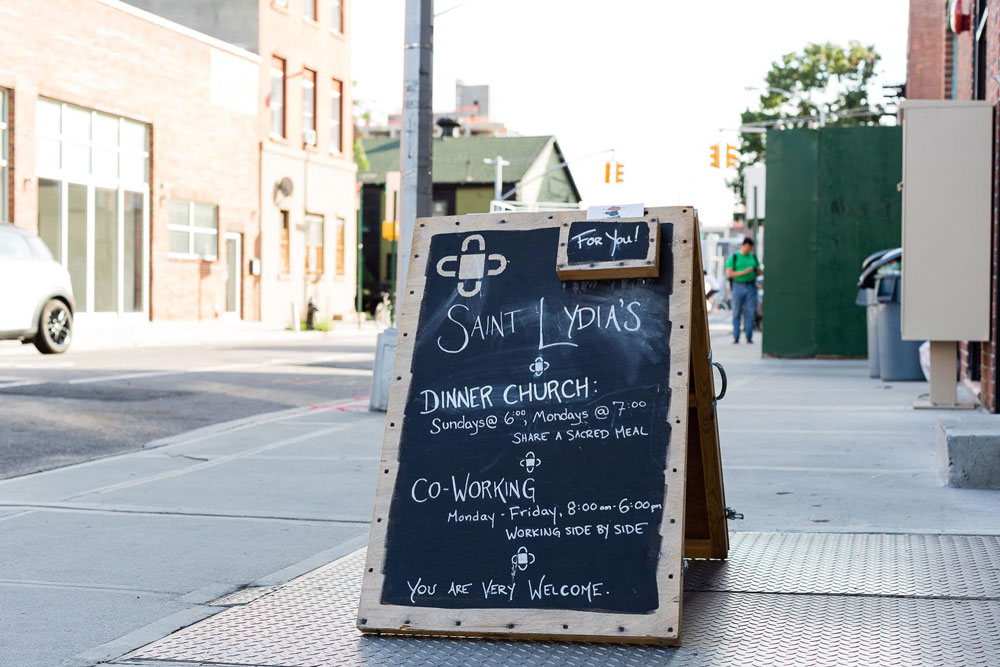 For You!
Saint Lydia's
Dinner Church:
Sundays @ 6:00, Mondays @ 7:00
Share a Sacred Meal
Co-Working
Monday - Friday, 8:00am - 6:00pm
Working Side by Side
You are Very Welcome.